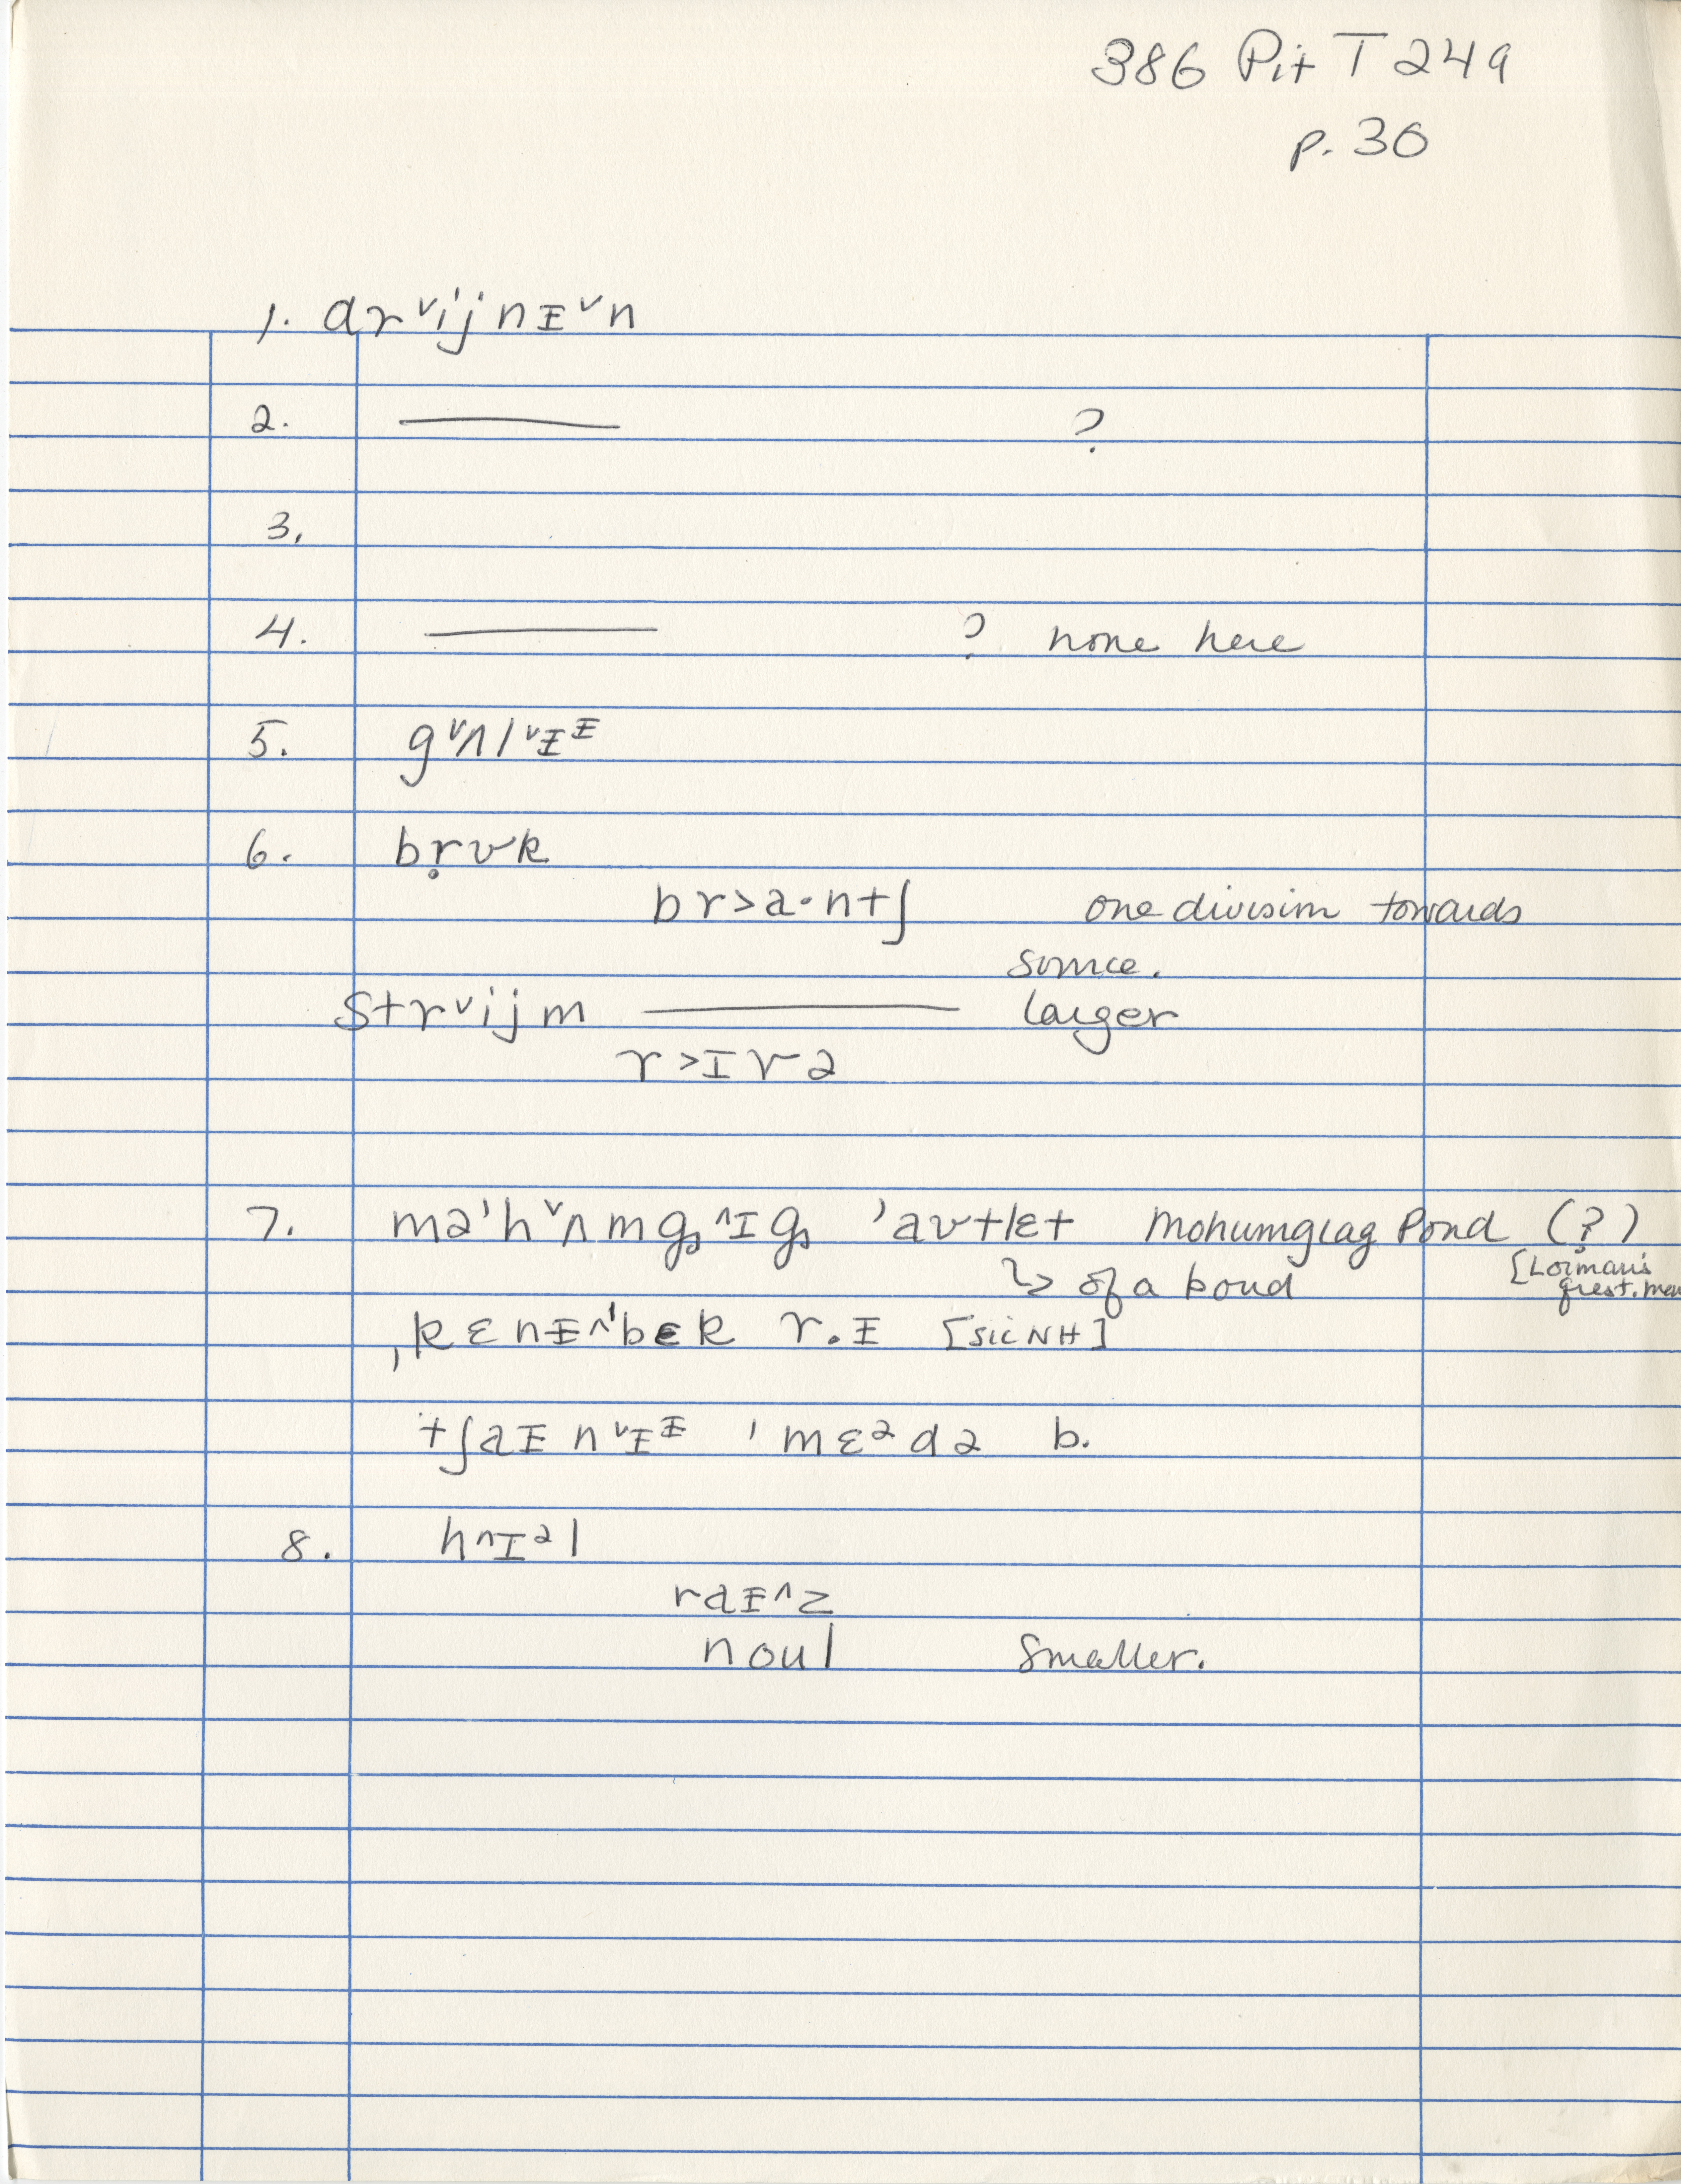 386 Pit T 249
p. 30
1. dr ᵛij nɪ ᵛn
2. ——— ?
3.
4. ——— ? none here
5. gᵛʌlᵛɪᶦ
6. br̥ʊk
br>a·nt∫ one division towards
source.
strᵛijm ——— larger
r>ɪvə
7. mə'hᵛʌmgᶺɪg 'aʊtlɛt Mohumgiag Pond (?)
↳ of a pond [Lorman's quest. mark
ˌkɛnɪᶺ'bɛk r.ɪ [sic NH]
t∫aɪnᵛɪᶦ 'mɛᵊdə b.
8. hᶺɪᵊl
raɪᶺz
noul smaller.